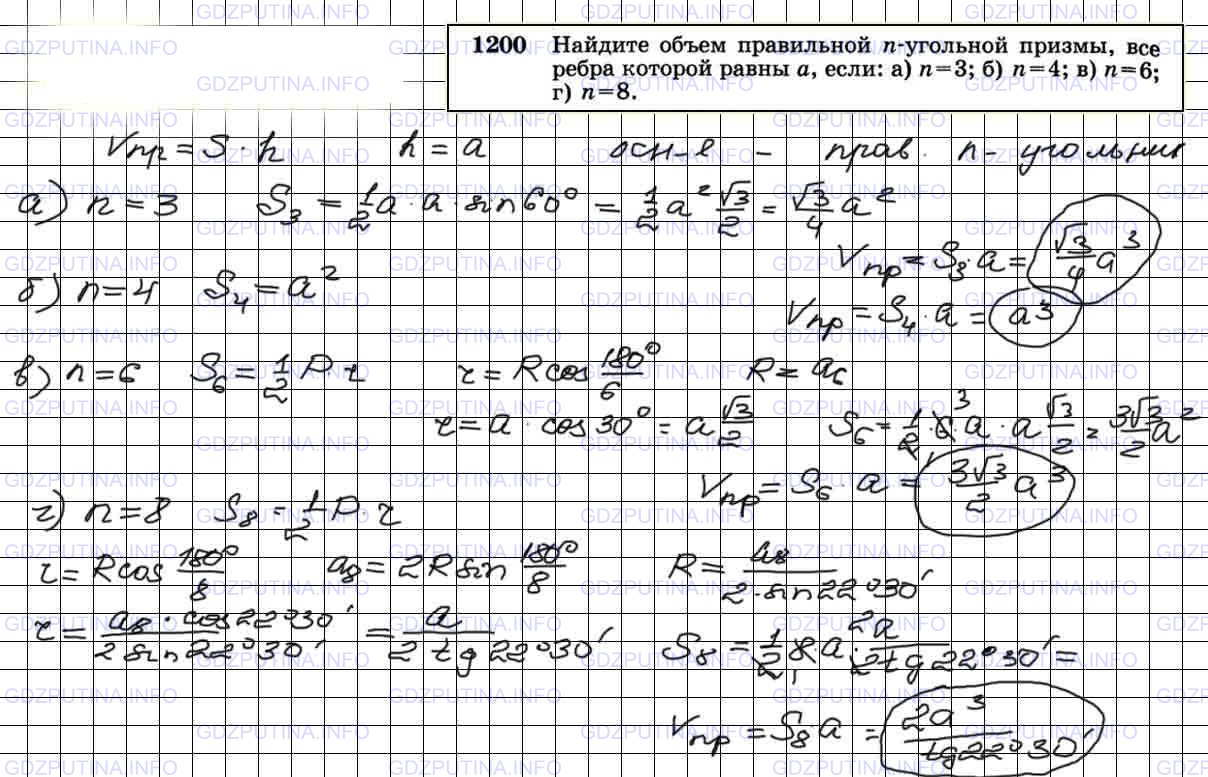 1200 Найдите объем правильной n-угольной призмы, все
ребра которой равны a, если: а) n=3; б) n=4; в) n=6;
г) n=8.
Vпр = S · h   h = a   осн-е - прав. n-угольник
а) n = 3   S₃ = 1/2 a · a · sin 60° = 1/2 a² √3/2 = √3/4 a²
Vпр = S₃ · a = √3/4 a³
б) n = 4   S₄ = a²
Vпр = S₄ · a = a³
в) n = 6   S₆ = 1/2 P · r   r = R cos 180°/6   R = a₆
r = a · cos 30° = a √3/2   S₆ = 1/2 · 6 3 a · a √3/2 = 3√3/2 a²
Vпр = S₆ · a = 3√3/2 a³
г) n = 8   S₈ = 1/2 P · r
r = R cos 180°/8   a₈ = 2R sin 180°/8   R = a₈/2·sin 22°30′
r = a₈ · cos 22°30′/2 sin 22°30′ = a/2 tg 22°30′   S₈ = 1/2 8 · a · 2a/2tg 22°30′ =
Vпр = S₈ · a = 2a³/tg 22°30′
GDZPUTINA.INFO